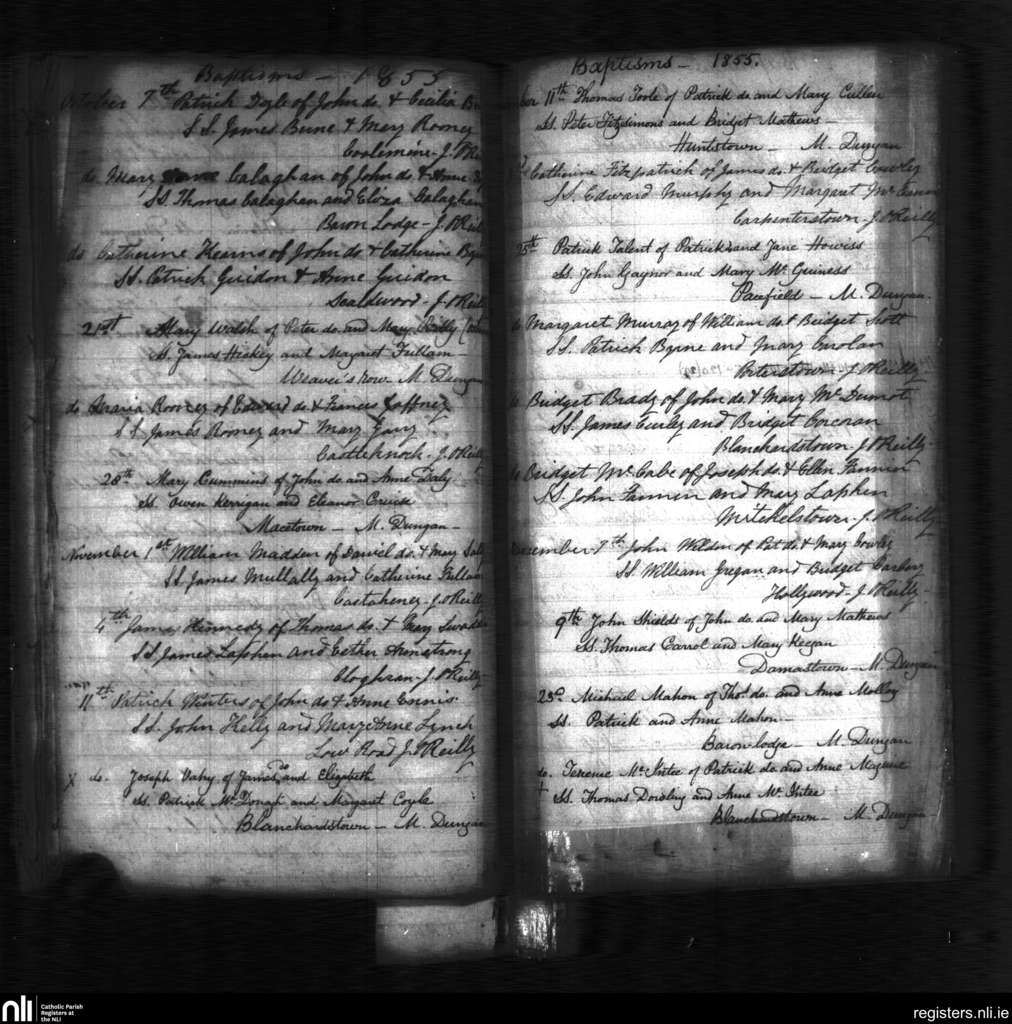 Baptisms - 1855.
October 7th Patrick Doyle of John do. & Cecilia
S.S. James Bune & Mary Rooney
Coolemine - J. O'Re
do Mary Calaghan of John do. & Anne
SS. Thomas Calaghan and Eliza Calaghan
Baron Lodge - J. O'Reil
do Catherine Kearns of John do & Catherine
SS. Patrick Guidon & Anne Guidon
J. O'Reil
21st Mary Walsh of Peter do. and Mary Reilly
Ss. James Hickey and Margaret Fullam -
Weaver's row. M Dungan
do Maria Rooney of Edward do. & Frances Gaffney
S.S. James Rooney and Mary Gary
Castleknock - J. O'Reilly
28th Mary Cummins of John do and Anne Daly
Ss. Owen Kerrigan and Eleanor Cruise
Macetown - M. Dungan -
November 1st William Madden of Daniel do. & Mary
SS. James Mullally and Catherine Fullam
J. O'Reilly
4th James Kennedy of Thomas do. &
S.S. James Laphen and Esther Armstrong
Cloghran - J. O'Reilly
11th Patrick Winters of John do & Anne Ennis
S.S. John Kelly and Mary Anne Lynch
Low Road J. O'Reilly
X do. Joseph Vahy of James do and Elizabeth
Ss. Patrick Mc Donagh and Margaret Coyle
Blanchardstown - M. Dungan
Baptisms - 1855.
ber 11th Thomas Toole of Patrick do and Mary Cullen
Ss. Peter Fitzsimons and Bridget Mathews -
Huntstown - M. Dungan
Catherine Fitzpatrick of James do. & Bridget Cowley
S.S. Edward Murphy and Margaret Mc Cann
Carpenterstown - J. O'Reilly
25th Patrick Talent of Patrick and Jane Howiss
Ss. John Gaynor and Mary Mc Guiness
Pacefield - M. Dungan.
Margaret Murray of William do. & Bridget Scott
S.S. Patrick Byrne and Mary
Porterstown - J. O'Reilly
Bridget Brady of John do. & Mary Mc Dermot
SS. James Curley and Bridget Corcoran
Blanchardstown J. O'Reilly
Bridget Mc Cabe of Joseph do. & Ellen Fannin
S.S. John Fannin and Mary Laphen
Mitchelstown - J. O'Reilly
December 7th John Weldon of Pat do. & Mary Cowley
SS. William Gregan and Bridget
Hollywood - J. O'Reilly -
9th John Shields of John do. and Mary Mathews
Ss. Thomas Carrol and Mary Keegan
Damastown - M. Dungan
23d Michael Mahon of Thos. do. and Anne Molloy
Ss. Patrick and Anne Mahon -
Baron lodge - M. Dungan
do. Terence Mc Intee of Patrick do and Anne Maguire
+ Ss. Thomas Dowling and Anne Mc Intee
Blanchardstown - M. Dungan -
nli
Catholic Parish
Registers at
the NLI
registers.nli.ie